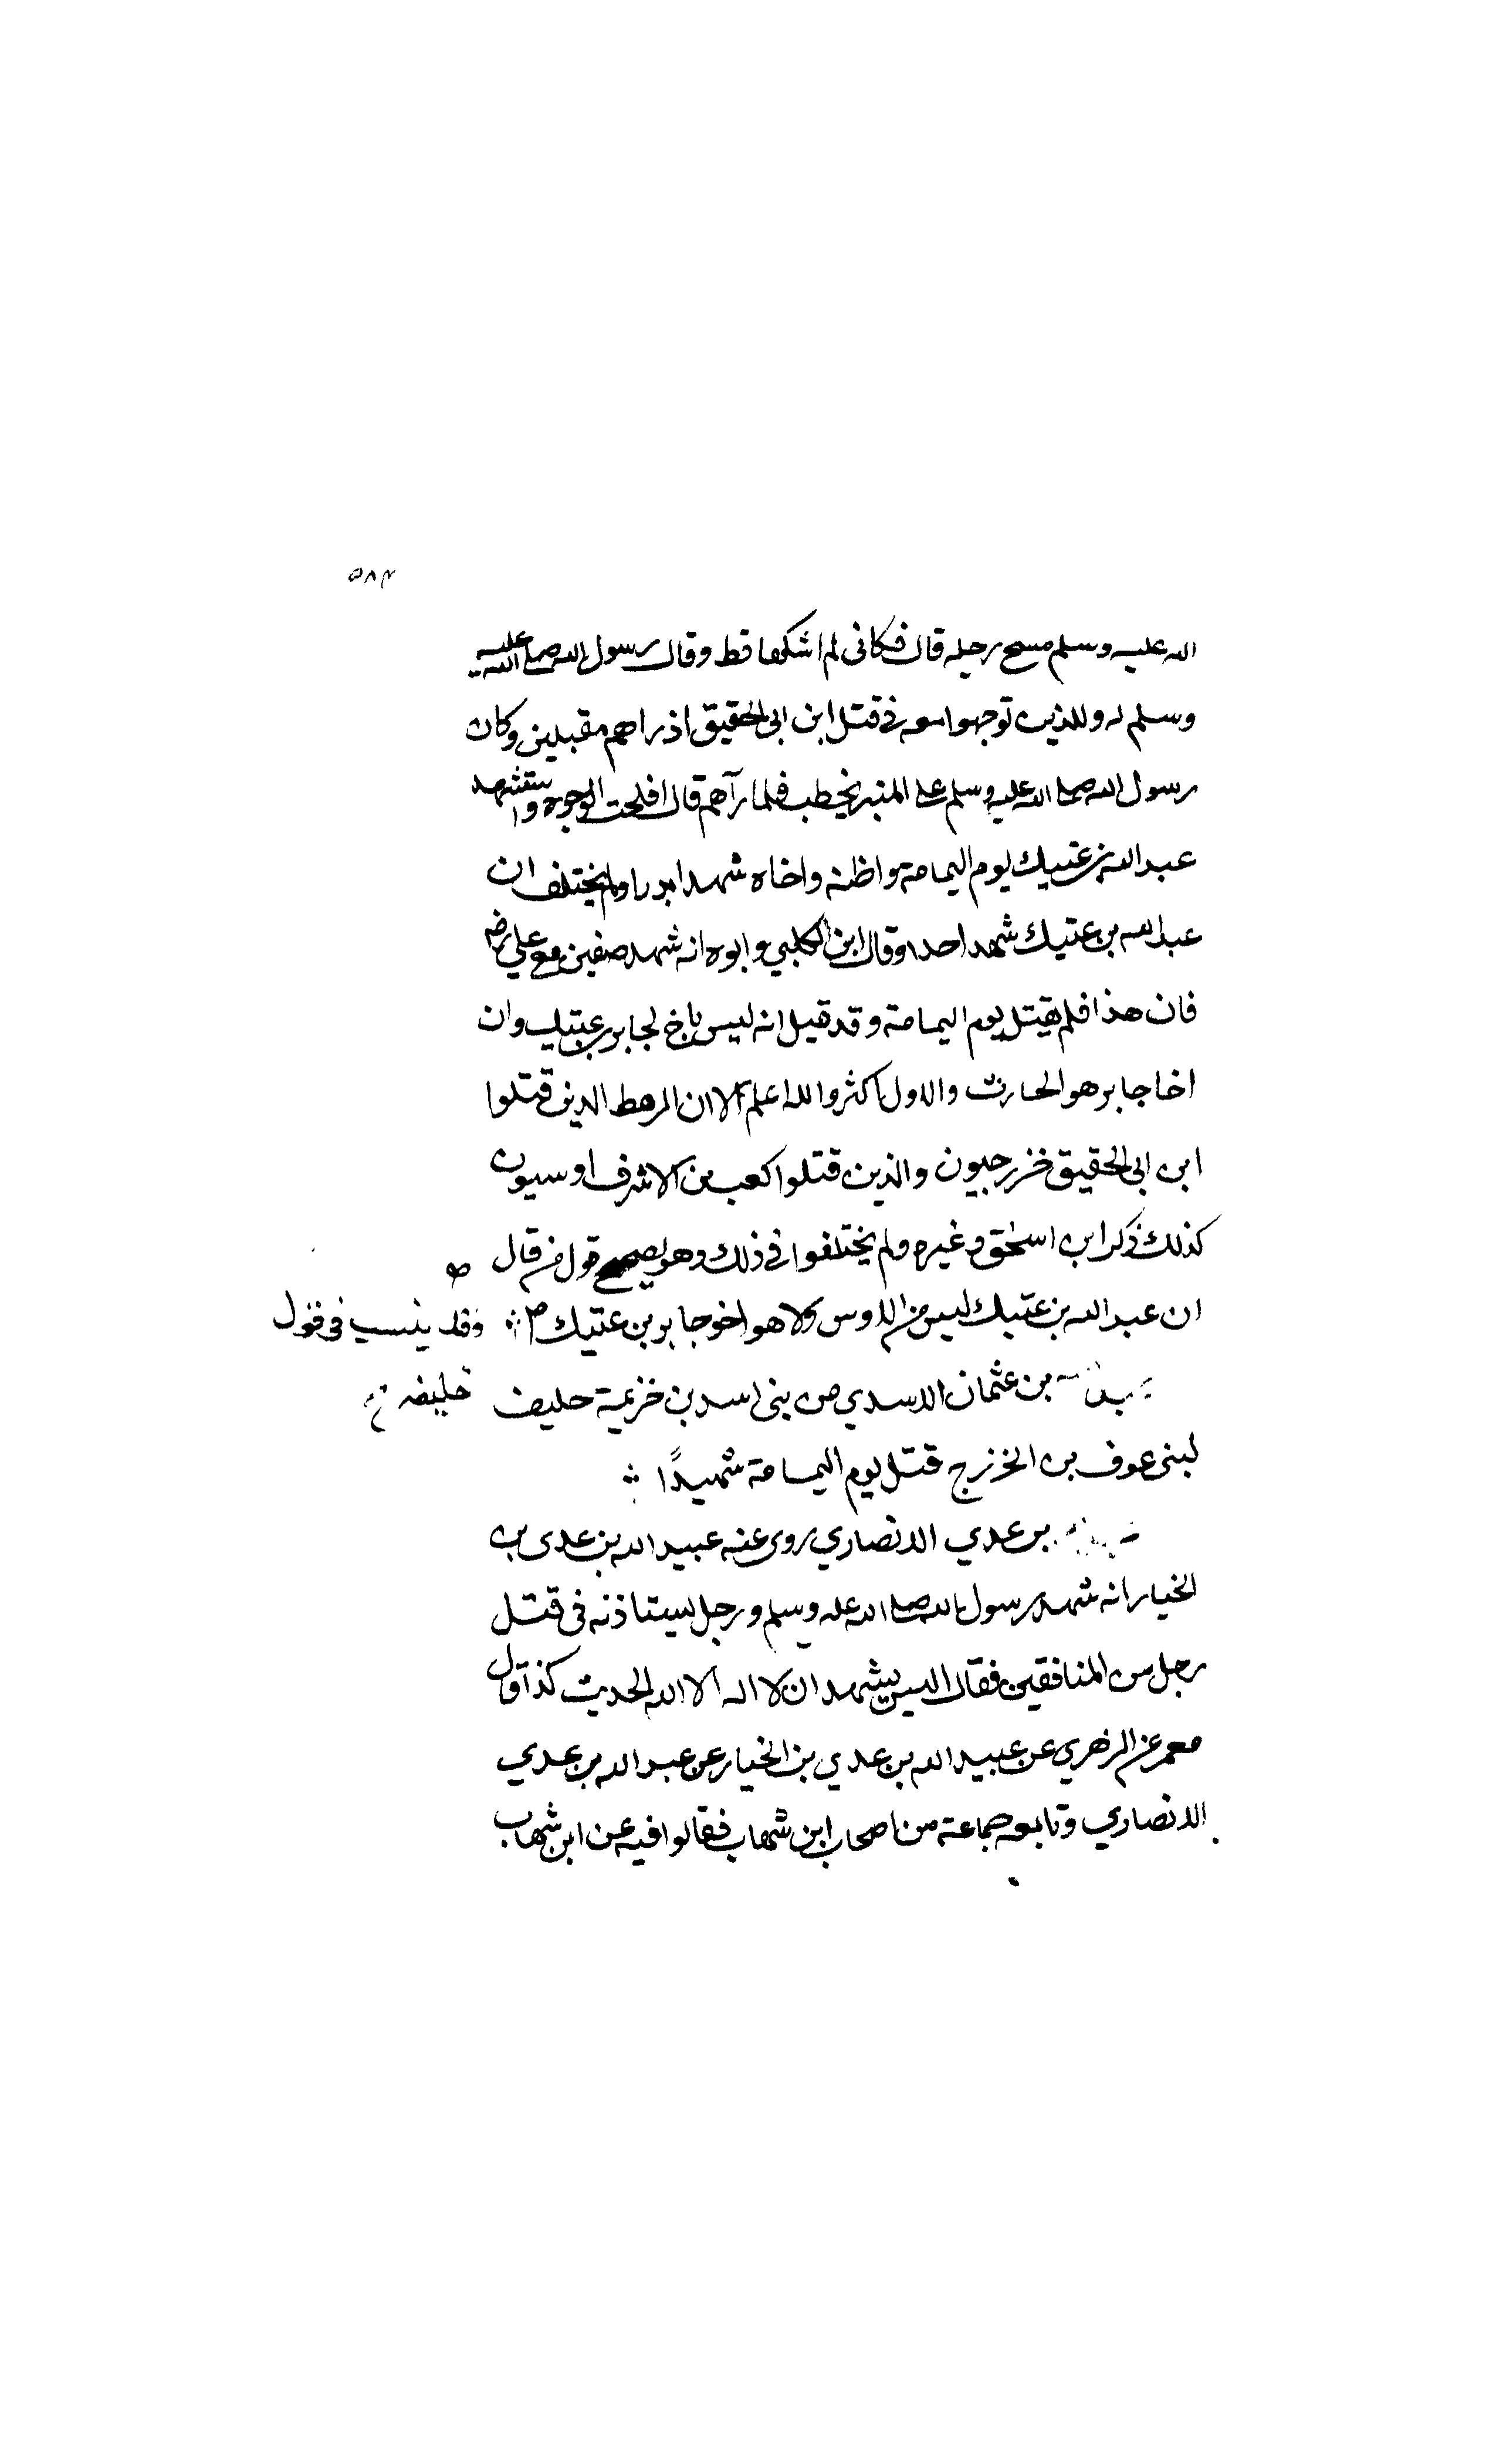 ٥٨٣
الله عليه وسلم مسح رجله قال فكانى لم اشكها قط وقال رسول الله صلى الله عليه
وسلم له وللذين توجهوا معه في قتل ابن ابى الحقيق اذ راهم مقبلين وكان
رسول الله صلى الله عليه وسلم على المنبر يخطب فلما رآهم قال افلحت الوجوه واستشهد
عبد الله بن عتيك يوم اليمامة واظنه واخاه شهدا بدرا ولم يختلف ان
عبد الله بن عتيك شهد احدا وقال ابن الكلبي وابوه انه شهد صفين مع علي رضه
فان هذا فلم يقتل يوم اليمامة وقد قيل انه ليس باخ لجابر بن عتيك وان
اخا جابر هو الحارث والاول اكثر والله اعلم الا ان الرهط الذين قتلوا
ابن ابى الحقيق خزرجيون والذين قتلوا كعب بن الاشرف اوسيون
كذلك ذكر ابن اسحق وغيره ولم يختلفوا في ذلك وهو يصحح قول من قال
ان عبد الله بن عتيك ليس من الاوس ولا هو اخو جابر بن عتيك
وقد ينسب في قول
خليفة
بن عثمان الاسدي من بنى اسد بن خزيمة حليف
لبنى عوف بن الخزرج قتل يوم اليمامة شهيدًا
بن عدي الانصاري روى عنه عبيد الله بن عدى بن
الخيار انه شهد رسول الله صلى الله عليه وسلم ورجل يستاذنه فى قتل
رجل من المنافقين فقال اليس يشهد ان لا اله الا الله الحديث كذا قال
معمر عن الزهري عن عبيد الله بن عدي بن الخيار عن عبد الله بن عدي
الانصاري وتابعه جماعة من اصحاب ابن شهاب فقالوا فيه عن ابن شهاب